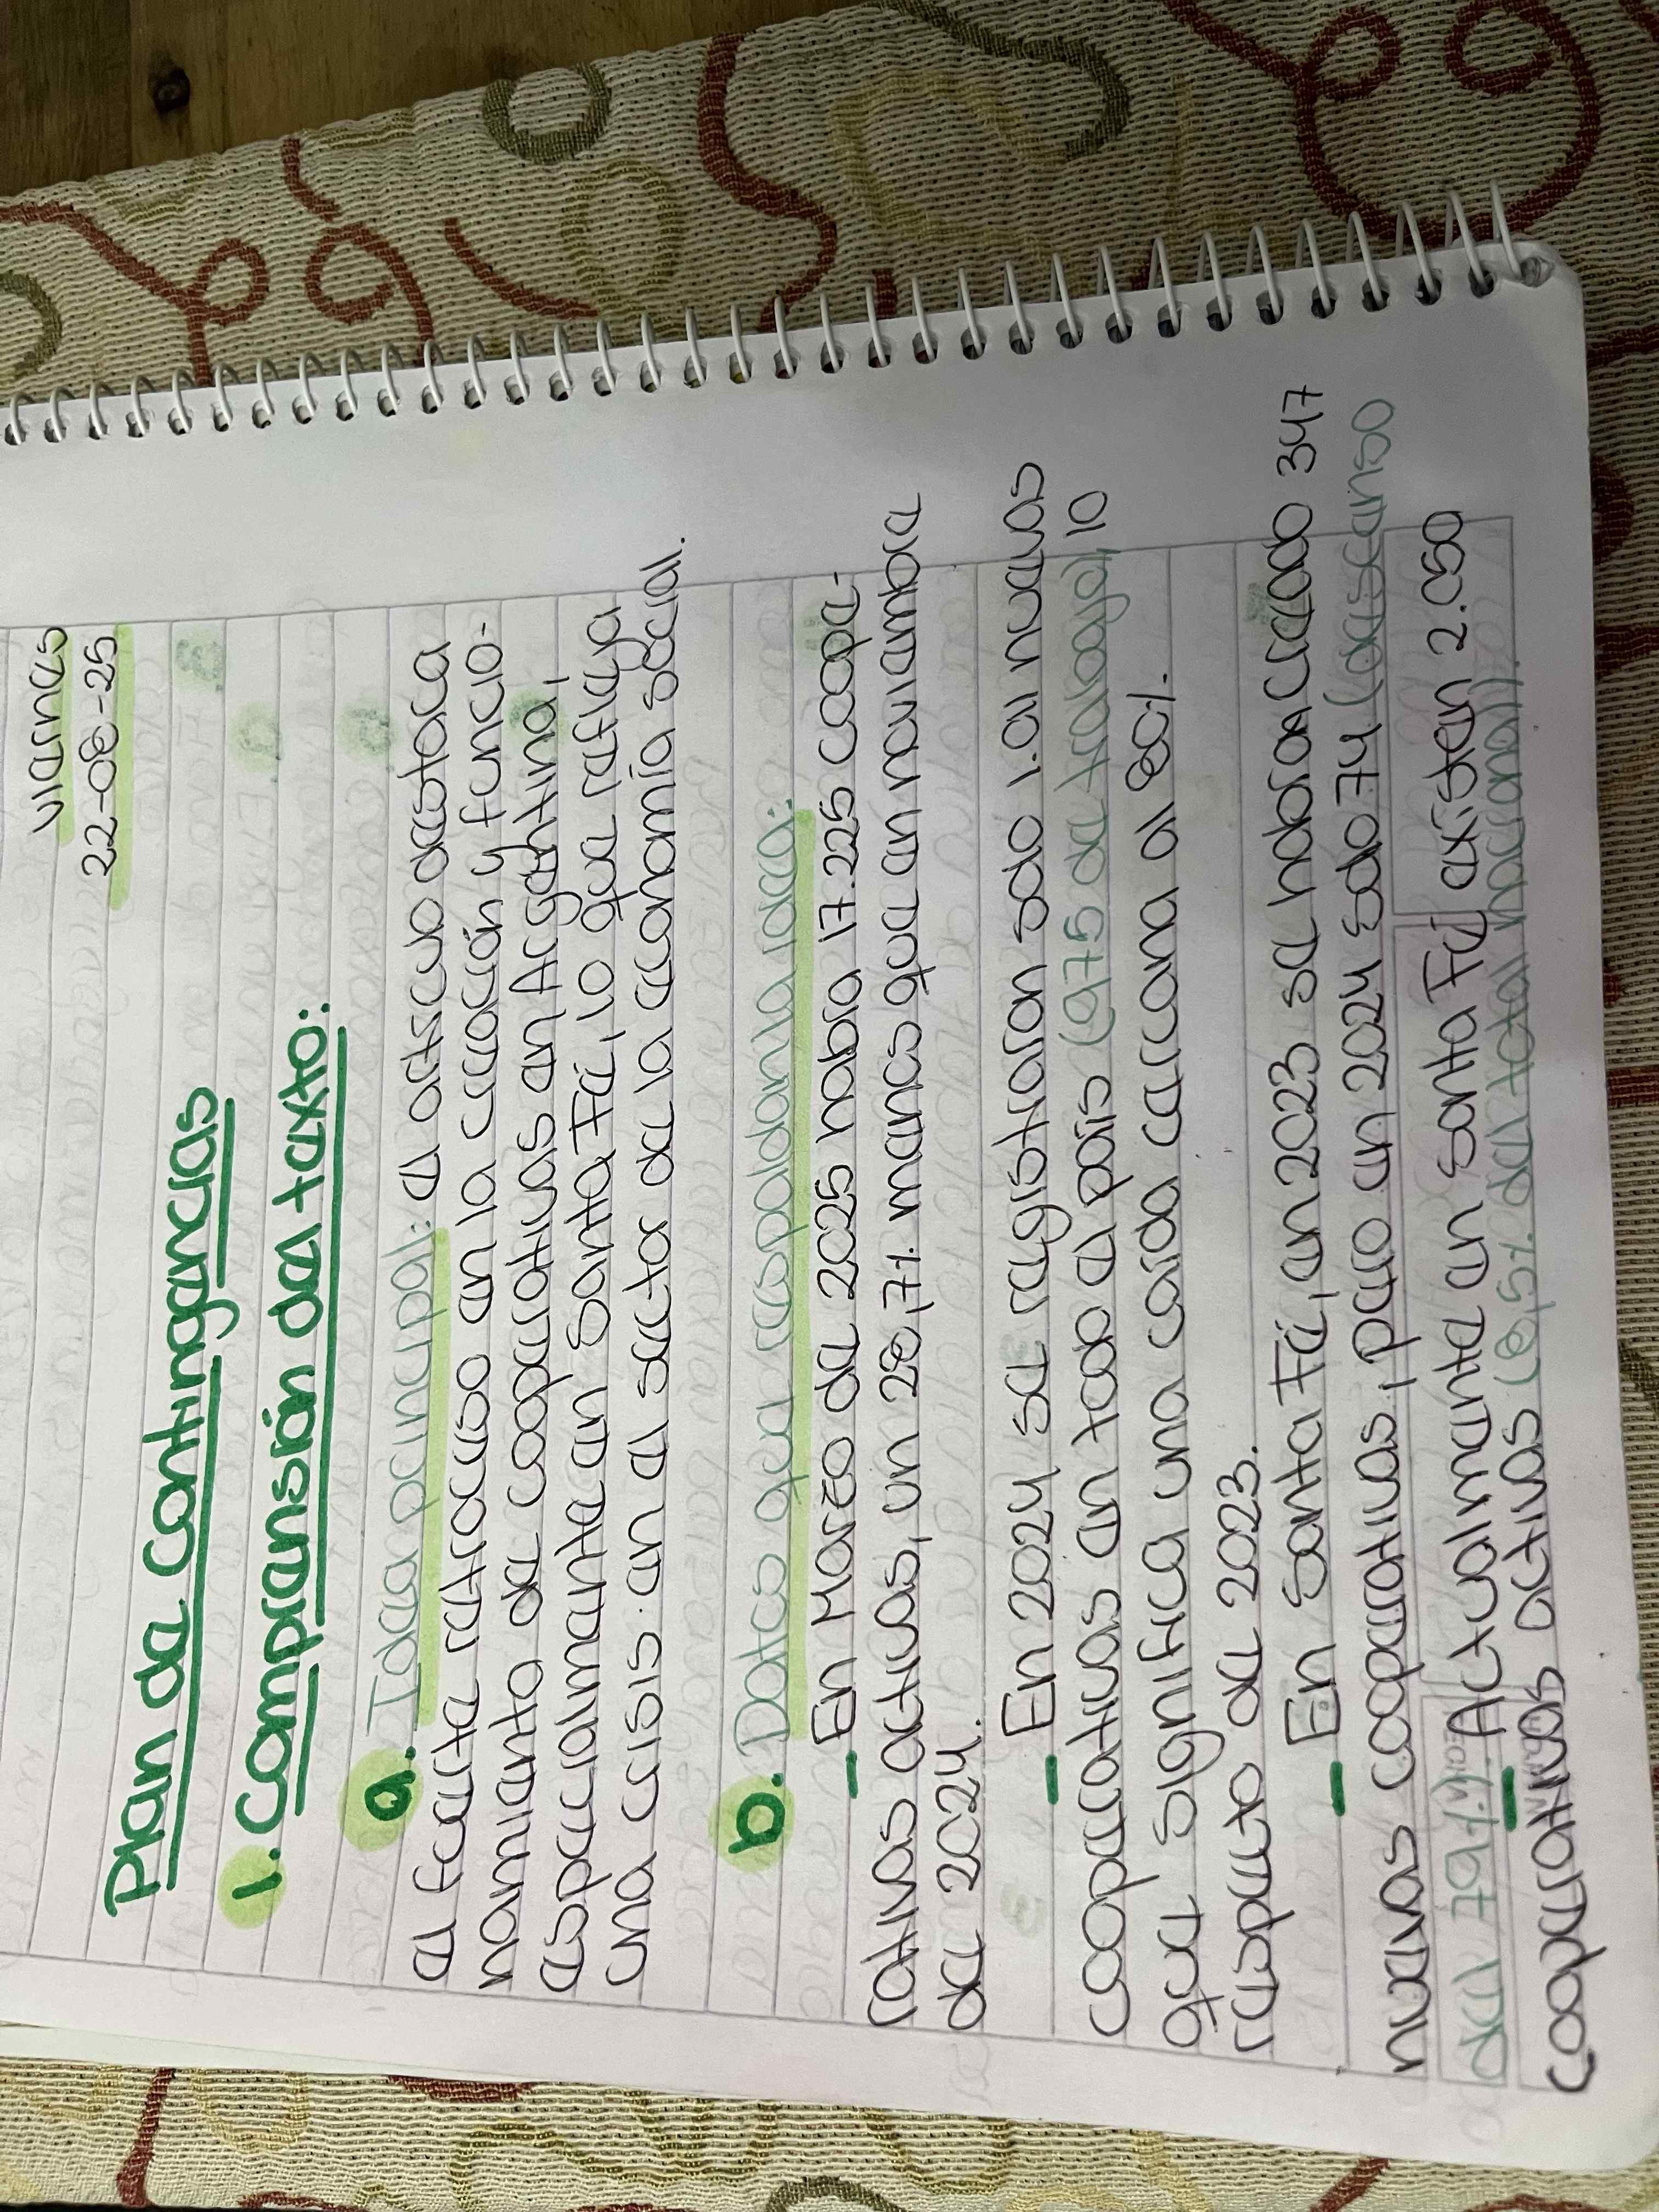 viernes
22-08-25
Plan de Contingencias
1. Comprensión del texto:
a. Idea principal: el artículo destaca
el fuerte retroceso en la creación y funcio-
namiento de cooperativas en Argentina,
especialmente en Santa Fé, lo que refleja
una crisis en el sector de la economía social.
b. Datos que respaldan la idea:
- En Marzo del 2025 había 17.225 coope-
rativas activas, un 28,7% menos que en noviembre
del 2024.
- En 2024 se registraron solo 1.011 nuevas
cooperativas en todo el país (975 de trabajo), lo
que significa una caída cercana al 80%
respecto al 2023.
- En Santa Fé, en 2023 se habían creado 347
nuevas cooperativas, pero en 2024 solo 74 (descenso
del 78,7%)
- Actualmente en Santa Fé existen 2.050
cooperativas activas (8,5% del total nacional).